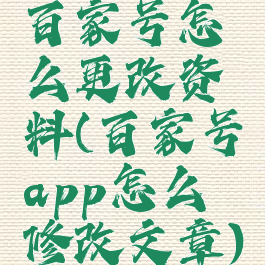 百家号怎
么更改资
料(百家号
app怎么
修改文章)